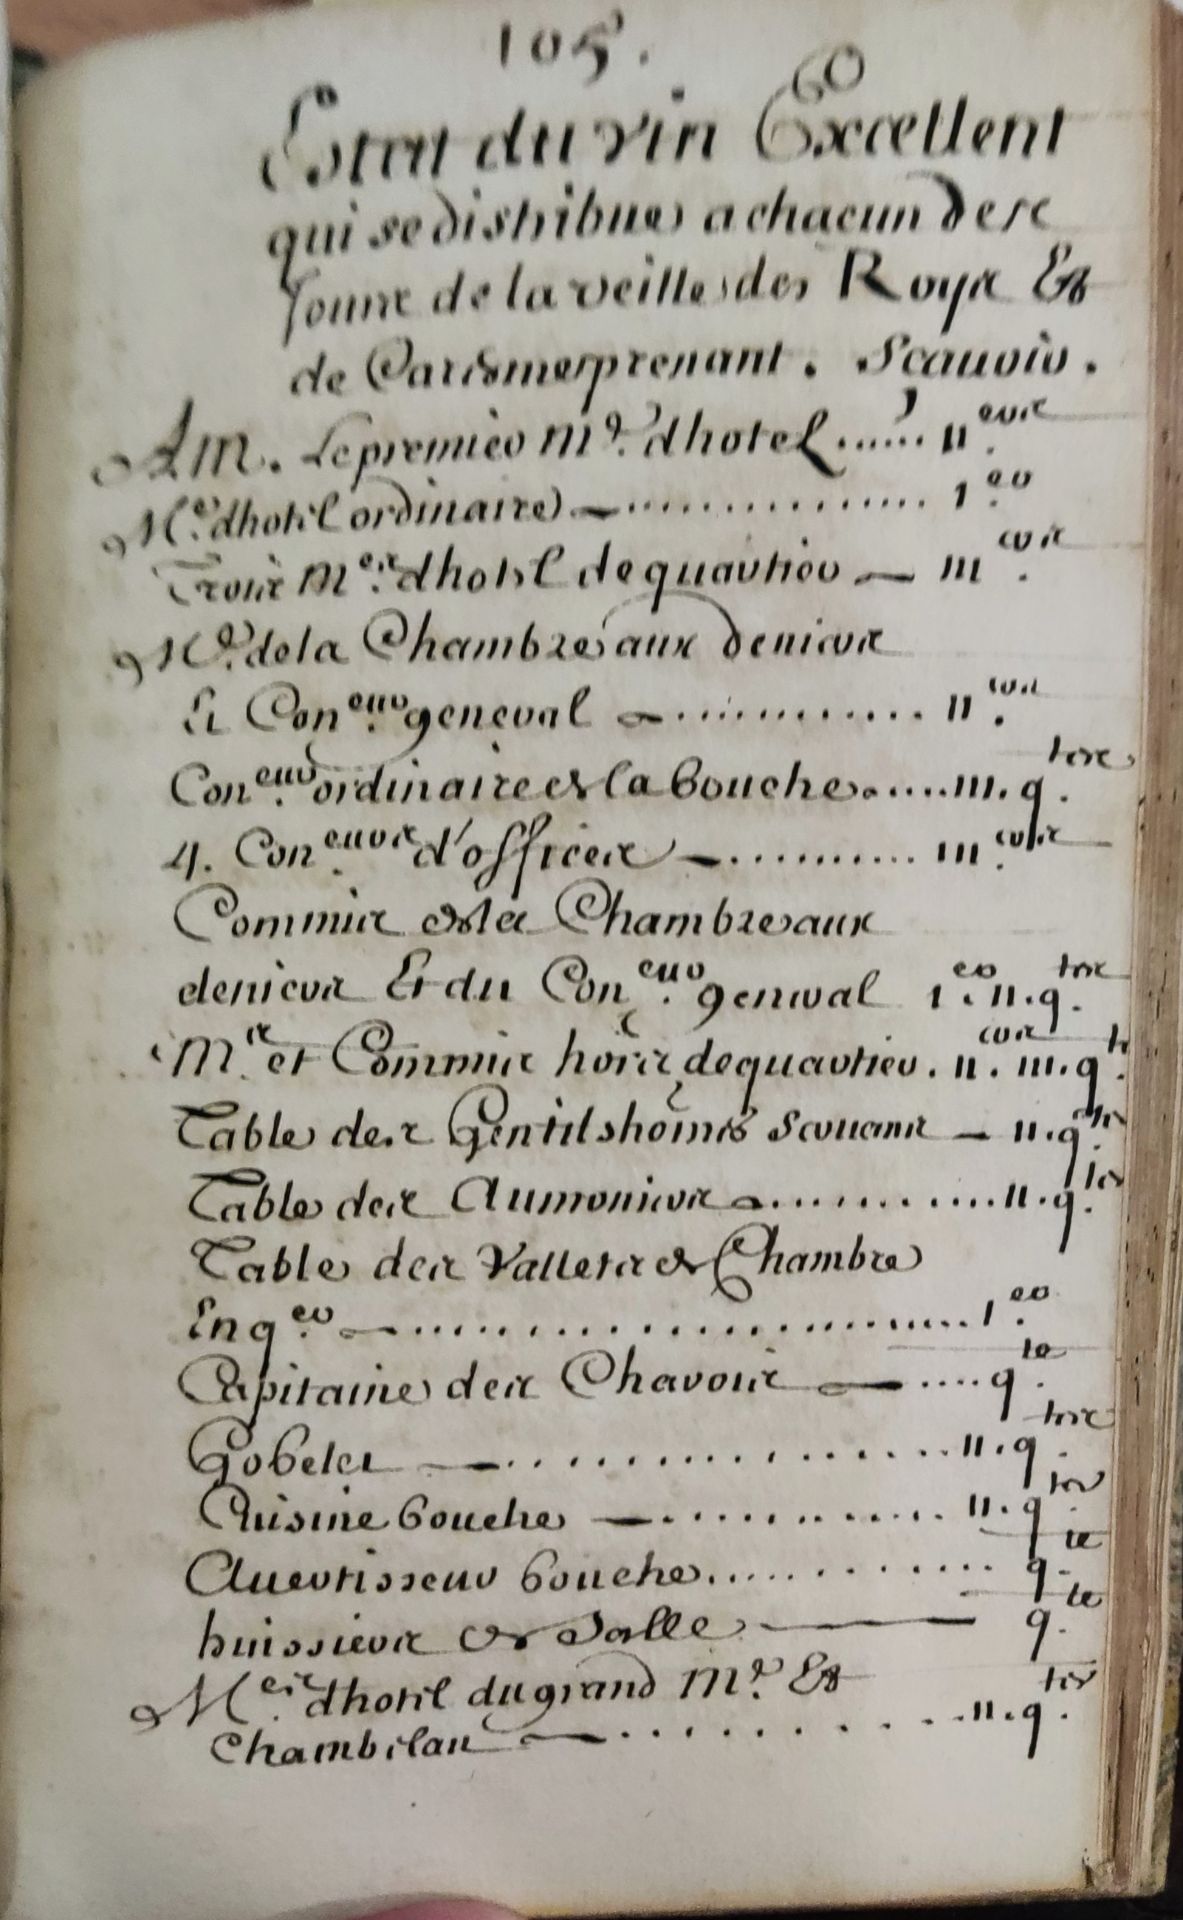 105.
Estat du vin Excellent
qui se distribue a chacun des
Jours de la veille des Roys Et
de Caresmeprenant. Scauoir.
A M. Le premier Me. dhotel ...... II ers.
Me. dhotel ordinaire ............... I er.
Trois Mes. dhotel de quartier — III ers.
Me. de la Chambre aux deniers
Et Coneur. general ............ II ers.
Coneur. ordinaire de la bouche ..... III. qters.
4. Coneurs. d'offices ........... III ers.
Commis de la Chambre aux
deniers Et du Coneur. general I er. II. qters.
Mes. et Commis hors de quartier. II ers. III. qt.
Table des Gentilshomes Seruans — II. qters.
Table des Aumoniers ............ II. qters.
Table des Vallets de Chambre
En qer. ........................ I er.
Capitaine des Charois — .... qte.
Gobelet — ................ II. qters.
Cuisine bouche — ............ II. qters.
Auertisseur bouche ............ qte.
huissiers de Salle — qte.
Mes. dhotel du grand Me. Et
Chambelan — ............ II. qters.